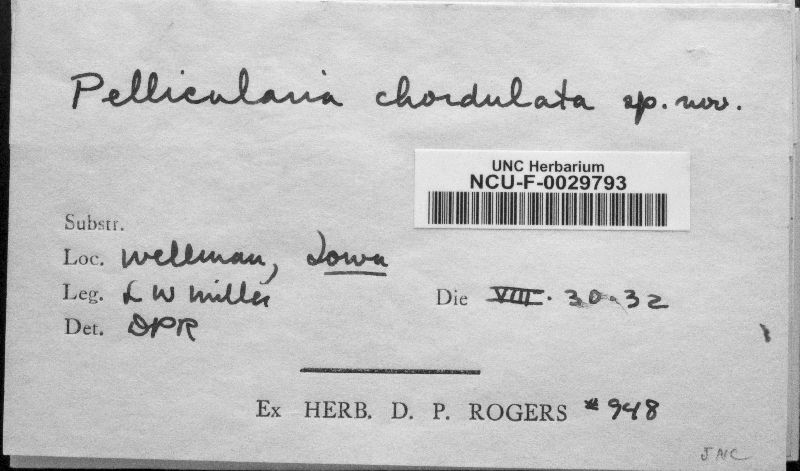 Pellicularia chordulata sp. nov.
UNC Herbarium
NCU-F-0029793
Substr.
Loc. Wellman, Iowa
Leg. L W Miller Die VIII. 30-32
Det. DPR
Ex HERB. D. P. ROGERS # 948